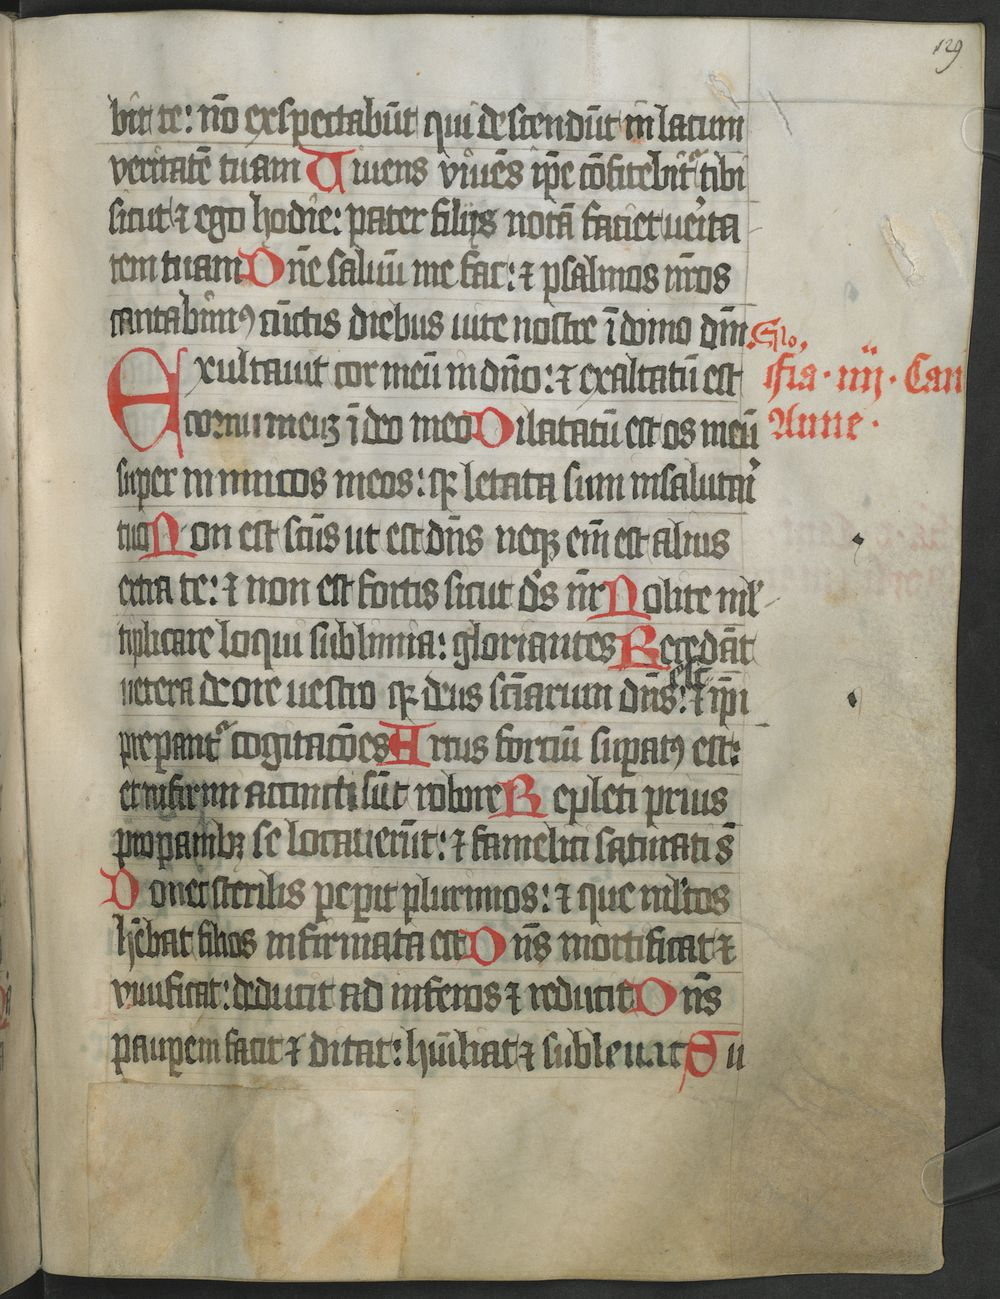 129
bit te: nō exspectabūt qui descendūt in lacum
veritatē tuam Viuens viuēs ip̄e cōfitebit᷑ tibi
sicut ⁊ ego hodie: pater filijs notā faciet uerita
tem tuam Dn̄e saluū me fac: ⁊ psalmos nr̄os
cantabimꝰ cūctis diebus uite nostre ī domo dn̄i. Glo.
Exultauit cor meū in dn̄o: ⁊ exaltatū est
fīa · iiij · Can
cornu meuꝫ ī deo meo Dilatatū est os meū
Anne ·
super inimicos meos: qꝛ letata sum in salutari
tuo Non est scūs ut est dn̄s neqꝫ em̄ est alius
extra te: ⁊ non est fortis sicut ds̄ nr̄ Nolite ml̓
tiplicare loqui sublimia: gloriantes Recedāt
uetera de ore uestro qꝛ deus scīarum dn̄s est: ⁊ ip̄i
prepant᷑ cogitacōes Arcus forciū suꝑatꝰ est:
et infirmi accincti sūt robore Repleti prius
pro panibꝫ se locauerūt: ⁊ famelici saturati s̄
Donec sterilis peꝑit plurimos: ⁊ que ml̓tos
hēbat filios infirmata est Dn̄s mortificat ⁊
viuificat: deducit ad inferos ⁊ reducit Dn̄s
pauꝑem facit ⁊ ditat: hūiliat ⁊ subleuat Su